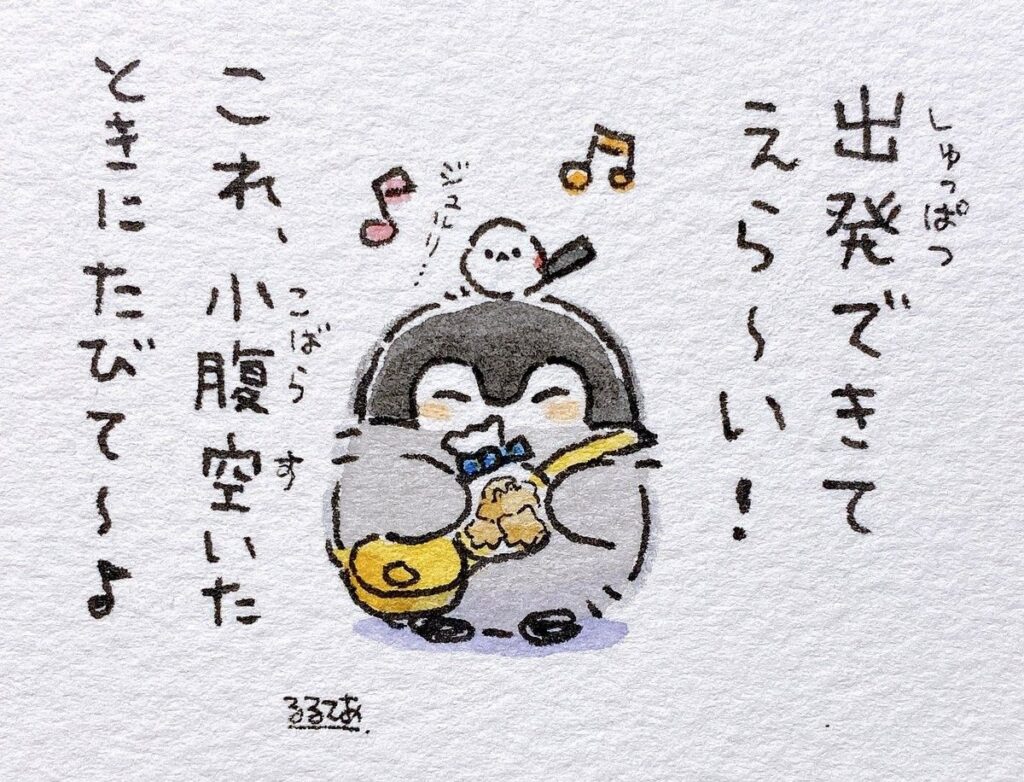 しゅっぱつ
出発できて
えら〜い!
ジュルリ…
これ、小腹空いた
こばら
す
ときにたびて〜♪
るるてあ